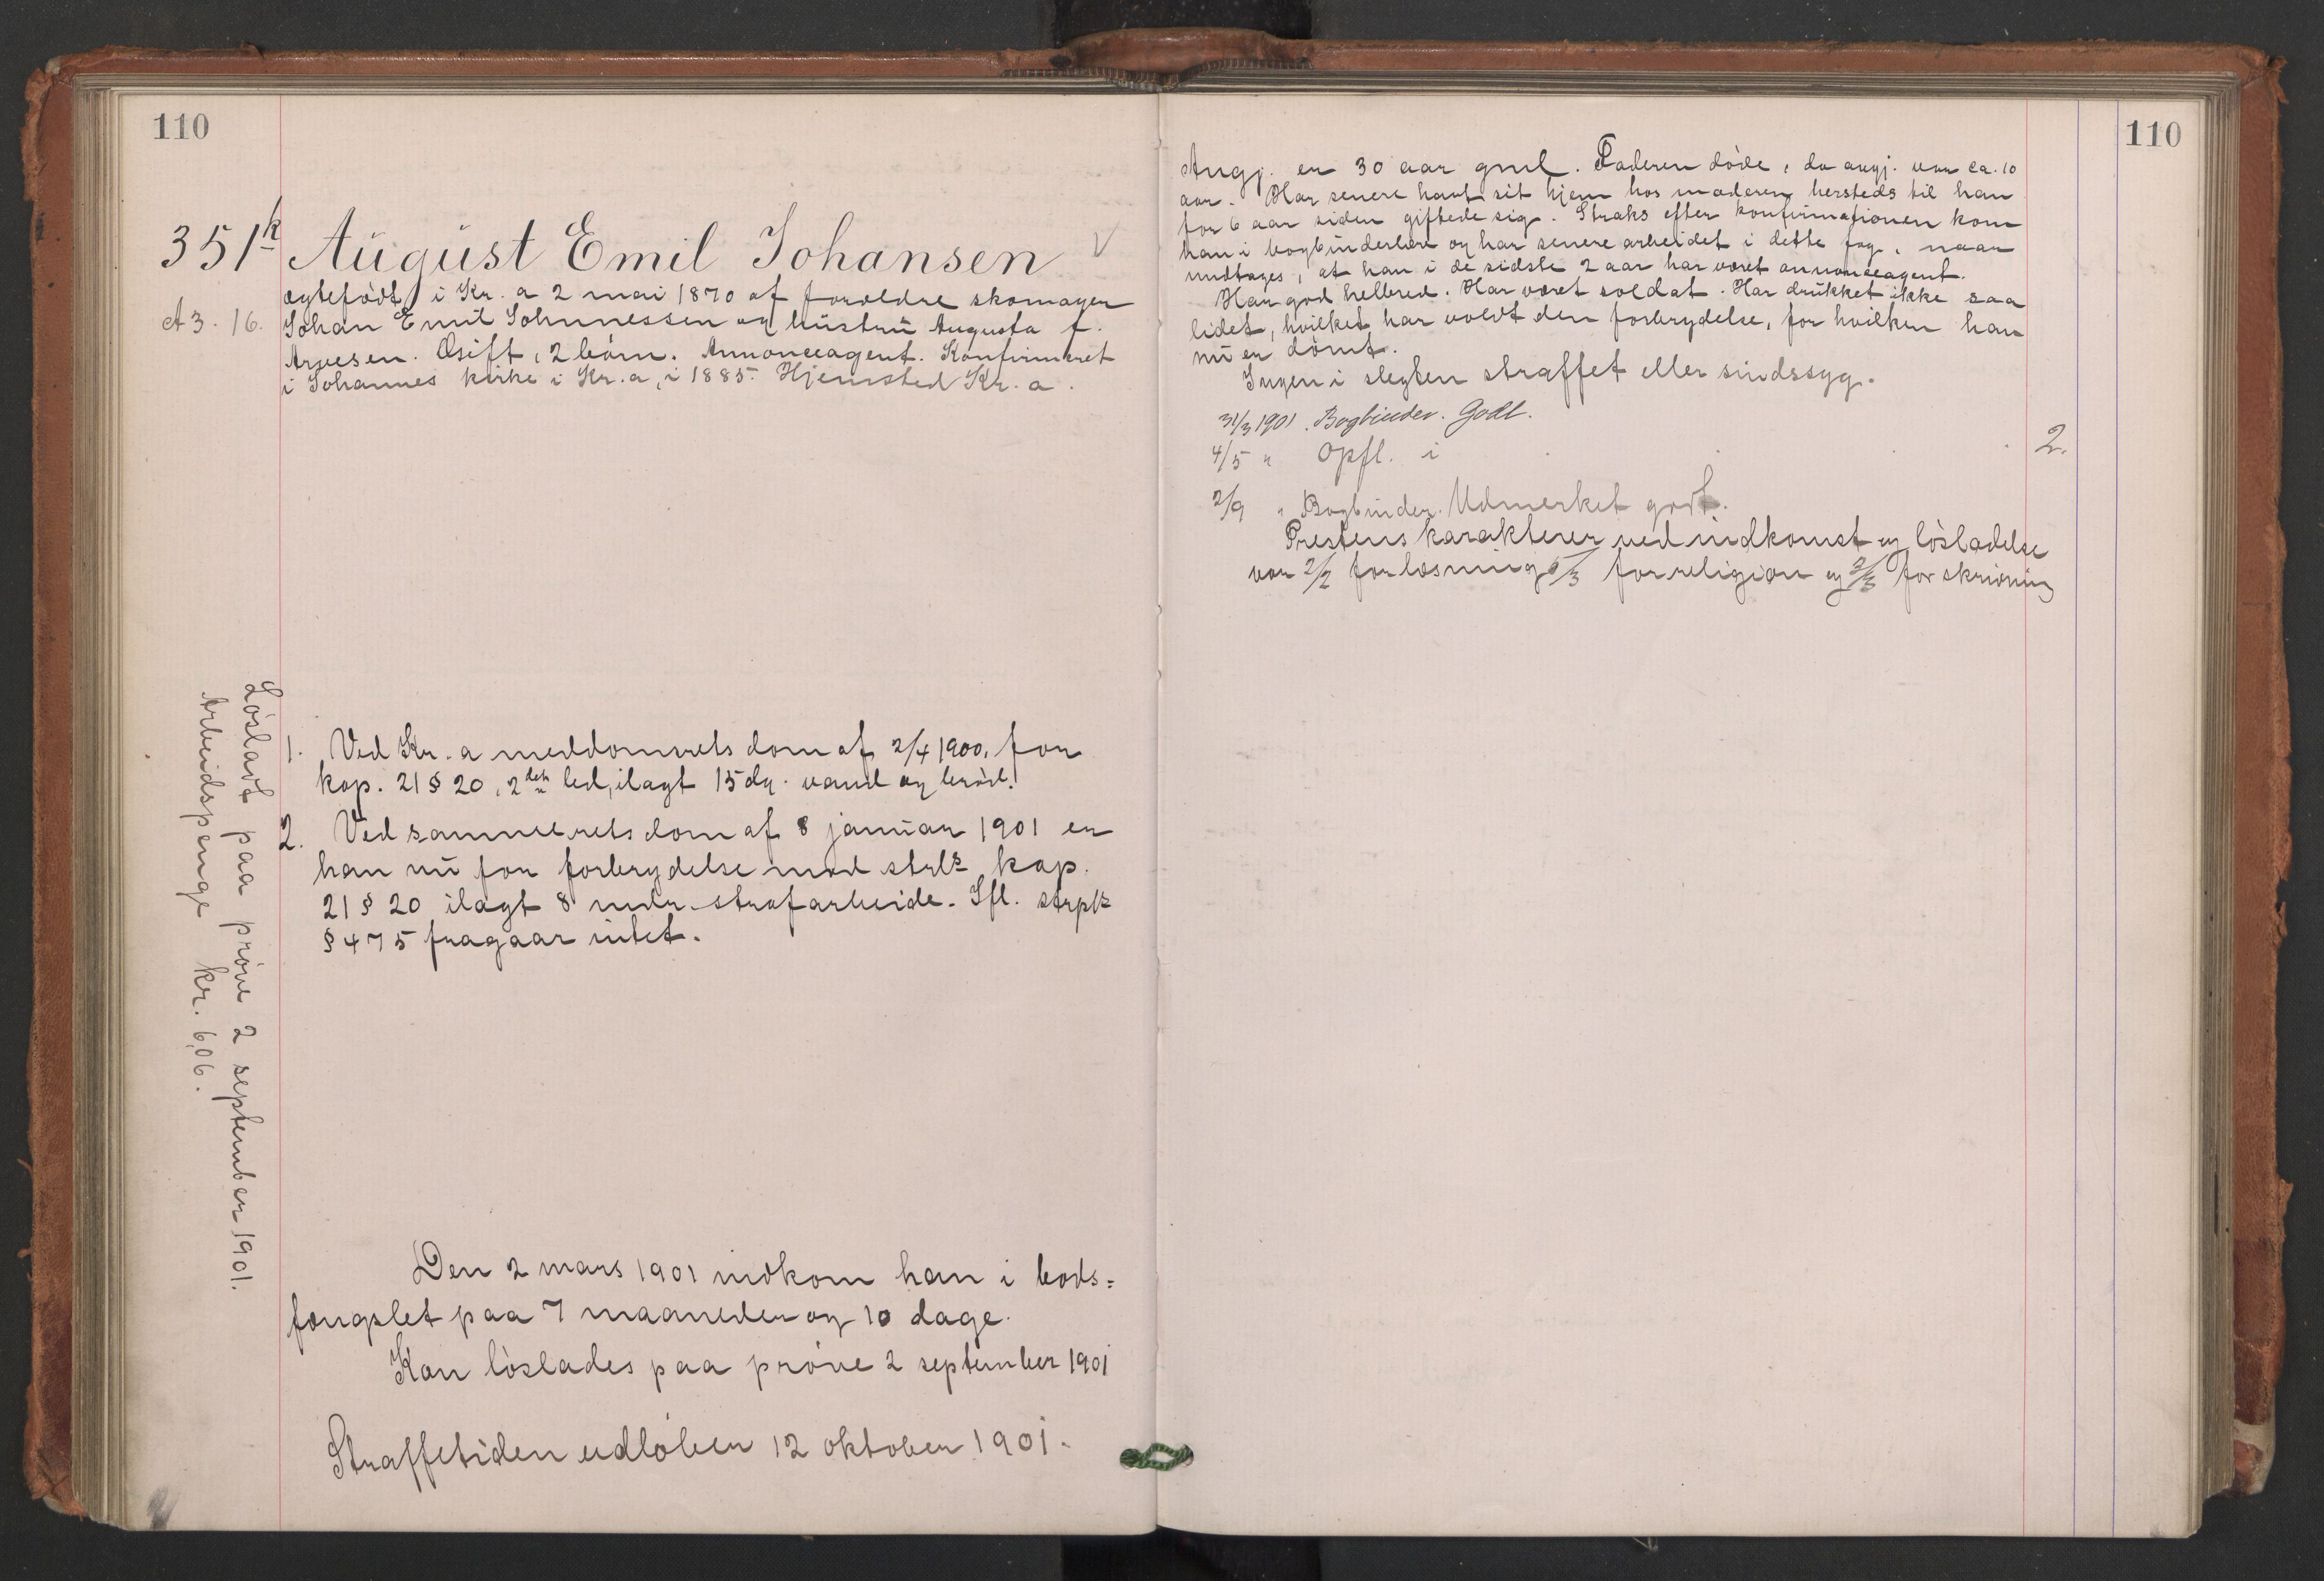 110
351k August Emil Johansen V
A 3. 16.
ægtefødt i Kr.a 2 mai 1870 af forældre skomager
Johan Emil Johannessen og hustru Augusta f.
Arvesen. Gift, 2 børn. Annonceagent. Konfirmeret
i Johannes kirke i Kr.a, i 1885. Hjemsted Kr.a.
1. Ved Kr.a meddomsrets dom af 2/4 1900, for
kap. 21 § 20, 2det led, ilagt 15 dg. vand og brød.
2. Ved samme rets dom af 8 januar 1901 er
han nu for forbrydelse mod strl's kap.
21 § 20 ilagt 8 mdr. strafarbeide. Ifl. strpl's
§ 475 fragaar intet.
Løsladt paa prøve 2 september 1901.
Arbeidspenge kr. 6,06.
Den 2 mars 1901 indkom han i bods=
fængslet paa 7 maaneder og 10 dage.
Kan løslades paa prøve 2 september 1901
Straffetiden udløber 12 oktober 1901.
110
Angj. er 30 aar gml. Faderen døde, da angj. var ca. 10
aar. Har senere havt sit hjem hos moderen hersteds til han
for 6 aar siden giftede sig. Straks efter konfirmationen kom
han i bogbinderlære og har senere arbeidet i dette fag, naar
undtages, at han i de sidste 2 aar har været annonceagent.
Har god helbred. Har været soldat. Har drukket ikke saa
lidet, hvilket har voldt den forbrydelse, for hvilken han
nu er dømt.
Ingen i slegten straffet eller sindssyg.
31/3 1901. Bogbinder. Godt.
4/5 " Opfl. i 2.
2/9 " Bogbinder. Udmerket godt.
Prestens karakterer ved indkomst og løsladelse
var 2/2 for læsning /3 for religion og 2/3 for skrivning